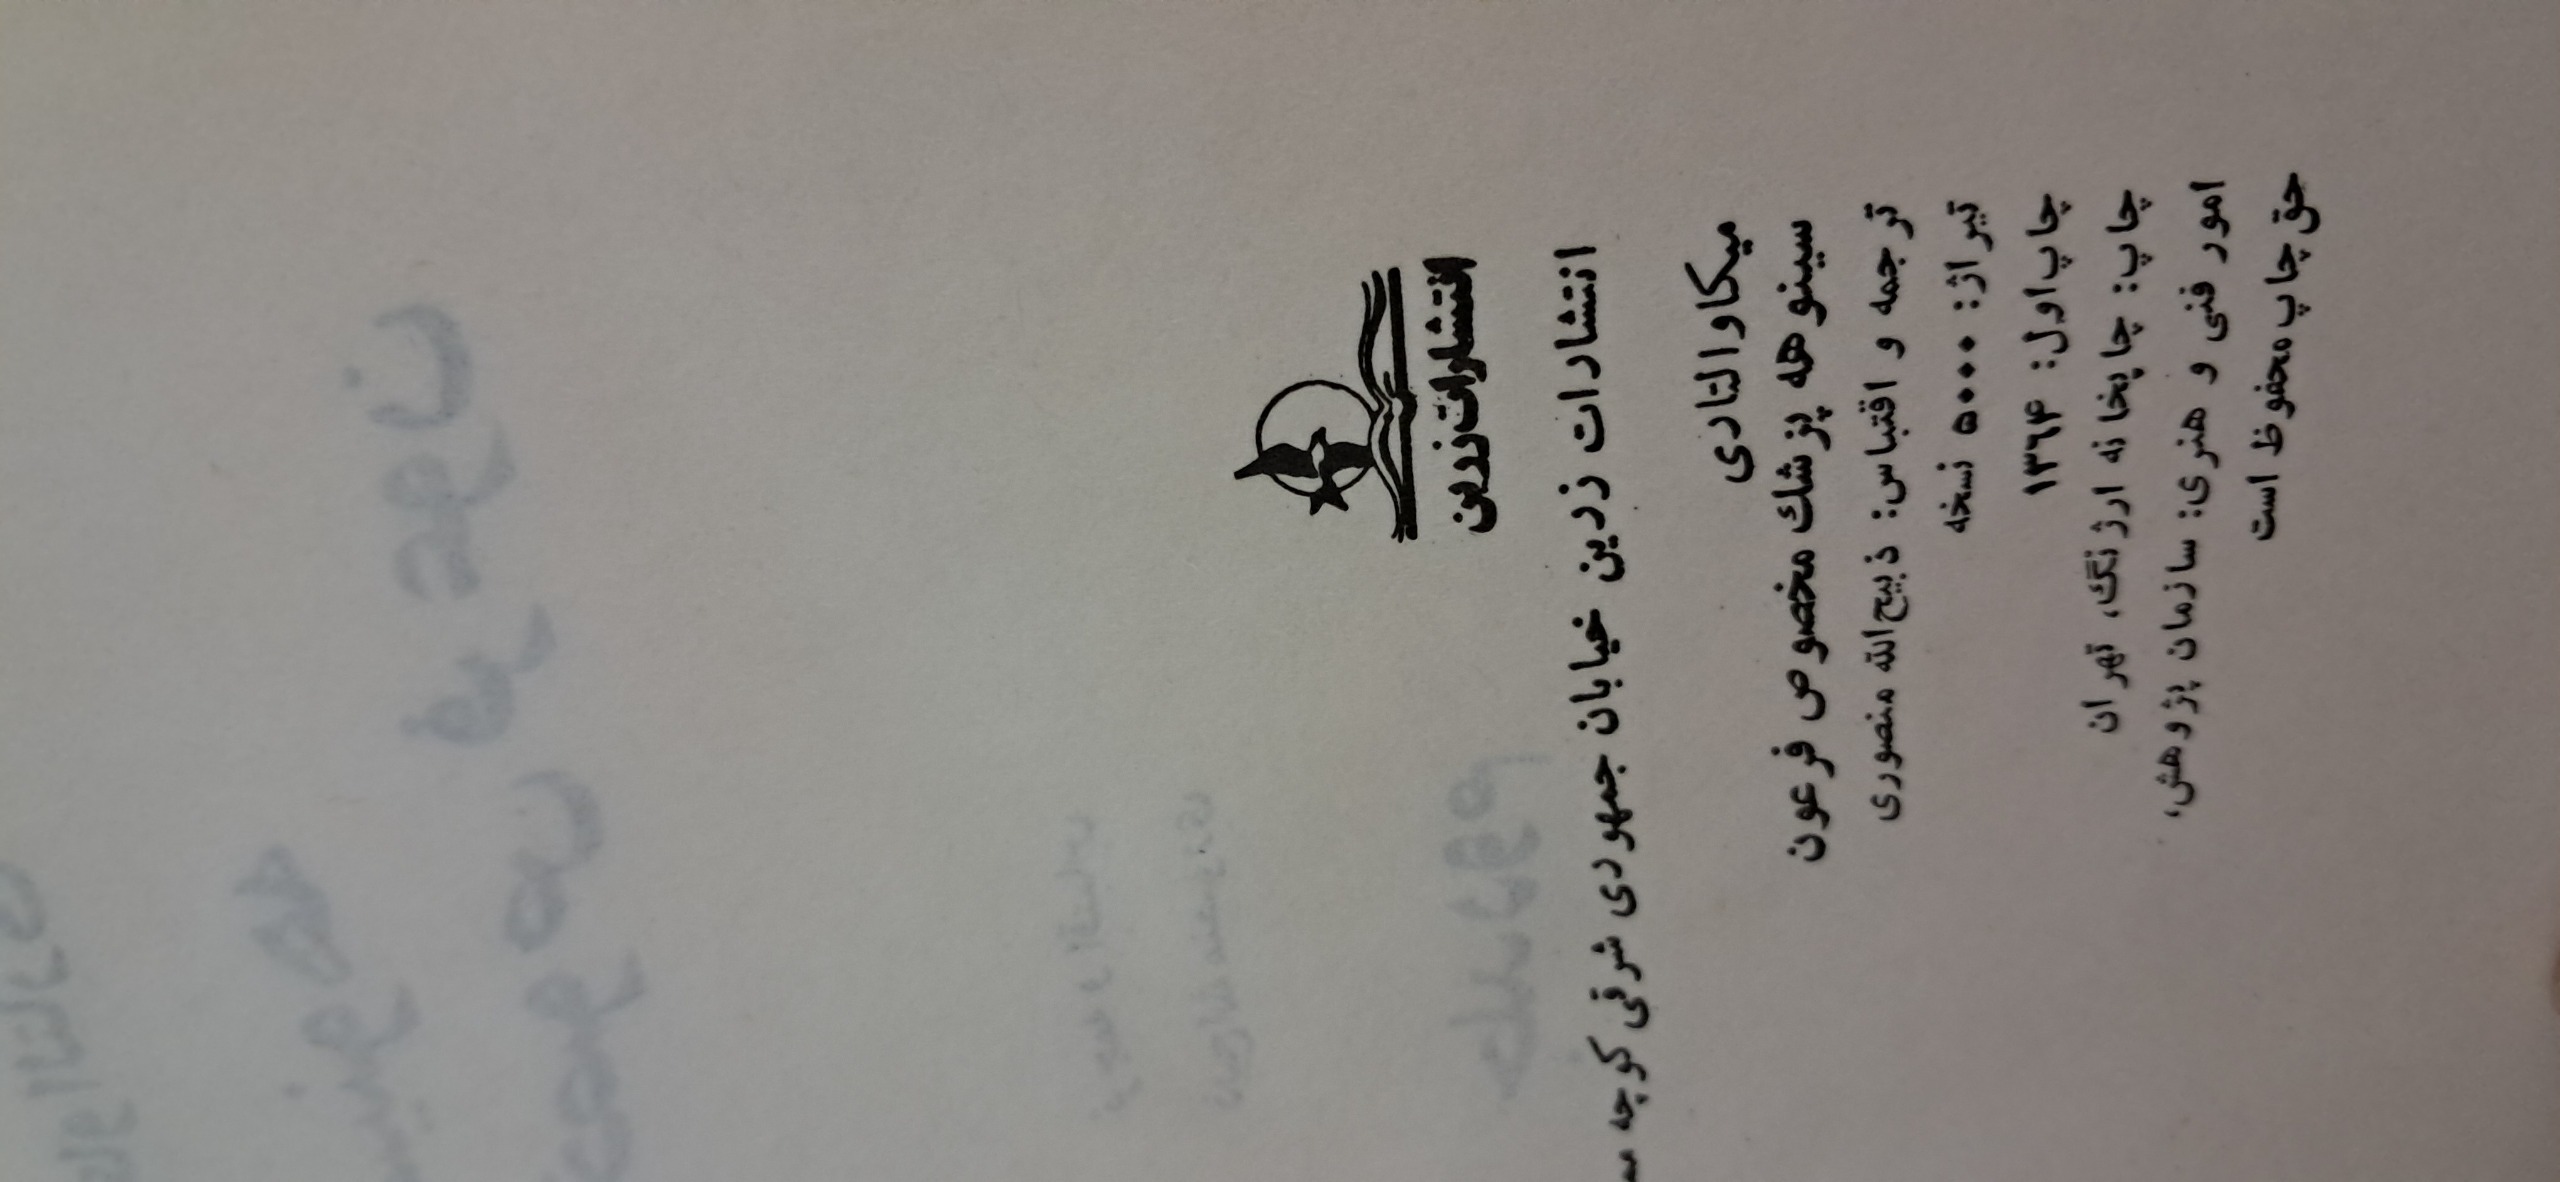 انتشارات زرین
انتشارات زرین خیابان جمهوری شرقی کوچه
میکاوالتاری
سینوهه پزشك مخصوص فرعون
ترجمه و اقتباس: ذبیح‌الله منصوری
تیراژ: ۵۰۰۰ نسخه
چاپ اول: ۱۳۶۴
چاپ: چاپخانه ارژنگ، تهران
امور فنی و هنری: سازمان پژوهش،
حق چاپ محفوظ است